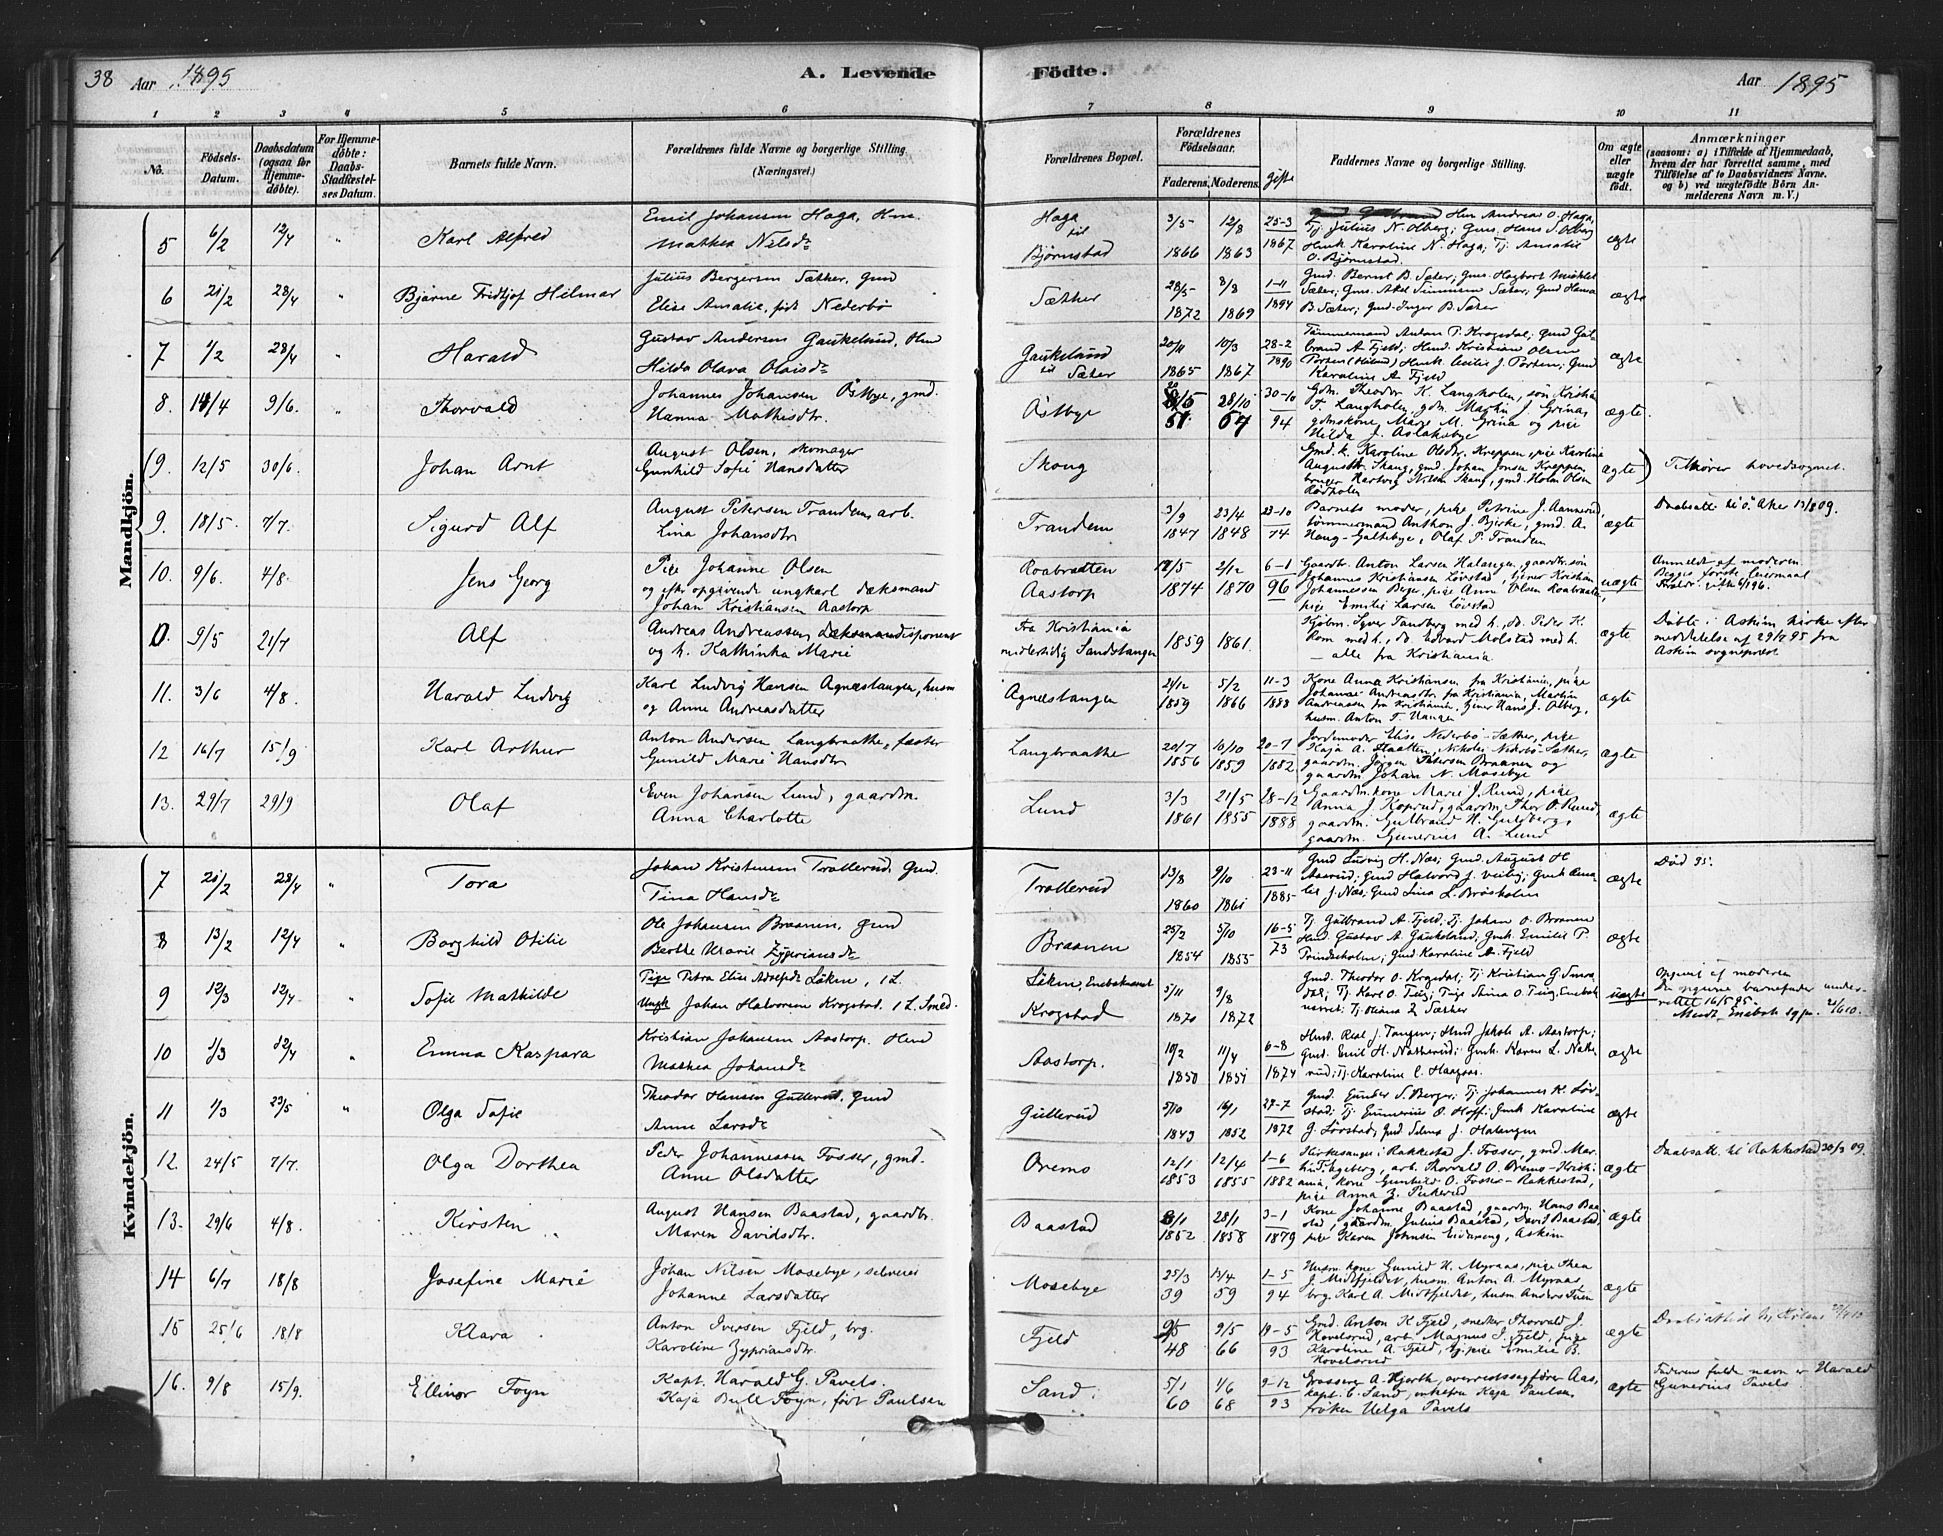 38 Aar 1895 A. Levende Födte. Aar 1895
1 2 3 4 5 6 7 8 9 10 11
No. Födsels-Datum. Daabsdatum (ogsaa for Hjemme-døbte). For Hjemme-døbte: Daabs-Stadfæstel-ses Datum. Barnets fulde Navn. Forældrenes fulde Navne og borgerlige Stilling. (Næringsvei.) Forældrenes Bopæl. Forældrenes Födselsaar. Faderens. Moderens. gifte Faddernes Navne og borgerlige Stilling. Om ægte eller uægte født. Anmærkninger (saasom: a) i Tilfælde af Hjemmedaab, hvem der har forrettet samme, med Tilføielse af to Daabsvidners Navne. og b) ved uægtefødte Börn An-melderens Navn m. V.)
Mandkjön.
5 6/2 12/4 " Karl Alfred Emil Johansen Haga, Hm. Mathea Nilsd. Haga til Bjørnstad 3/5 1866 12/8 1863 25-3 1867 Hm Andreas O. Haga, Tj. Julius N. Olberg; Gms. Hans J. Olberg Hmk Karoline N. Haga; Tj. Amalie O. Bjørnstad. ægte
6 21/2 28/4 " Bjarne Fridtjof Hilmar Julius Bergersen Sæther, Gmd Elise Amalie, født Nederbø Sæther 28/5 1872 8/8 1869 1-11 1894 Gmd. Bernt B. Sæter; Gms. Hagbart Sæter; Gms. Axel Simensen Sæter; Gmd Hanna B. Sæter; Gmd. Inger B. Sæter ægte
7 1/2 28/4 " Harald Gustav Andersen Gaukelund, Hmd Hilda Olava Olaisd. Gaukelund til Sæter 20/11 1865 10/3 1867 28-2 1890 Tømmermand Anton P. Krogsdal; Gmd Gulbrand A. Fjeld; Hmd. Kristian Olsen Porten; Hmk. Cecilie J. Porten; Gmd Karoline A. Fjeld ægte
8. 14/4 9/6. " Thorvald Johannes Johansen Östbye, gmd. Hanna Mathisdtr. Östbye 28/10 64 30-10 94 Gdm. Theodor K. Langholen, søn Kristian F. Langholen, gdm. Martin J. Grina, gdmskone Marie M. Grina og pige Hilda J. Aslaksbye ægte.
(9. 12/5 30/6. Johan Arnt August Olsen, skomager Gunhild Sofie Hansdatter Skoug Gmd. k. Karoline Olsdtr. Kreppen, pige Karoline Augustdtr. Skoug, gmd. Johan Jonsen Kreppen, bruger Hartvig Nilsen Skoug, gmd. Holm Olsen Rødholen ægte) Tilhører hovedsognet.
9. 18/5. 7/7. Sigurd Alf August Petersen Trandem, arb. Lina Johansdtr Trandem 3/9 1847 23/4 1848 23-10 74 Barnets moder, pige Petrine J. Aannerud, tømmermand Anthon J. Bjerke, gmd. A. Haug-Galtebye, Olaf P. Trandem ægte Daabsatt. til Ö. Aker 13/8 09.
10. 9/6. 4/8. Jens Georg Pige Johanne Olsen og efter opgivende ungkarl dæksmand Johan Kristiansen Aastorp Raabraatten Aastorp 1874 2/12 1870 6-1 96 Gaardbr. Anton Larsen Halangen, gaardbr. søn Johannes Kristiansen Løvstad, tjener Kristian Johannessen Berger, pige Anne Olsen Raabraaten, pige Emilie Larsen Løvstad uægte, Anmeldt af moderen Begges første Leiermaal Foreldr. gifte 6/1 96.
0. 9/5 21/7 Alf Andreas Andreassen, disponent og h. Kathinka Marie Fra Kristiania midlertidig Sandstangen 1859 1861. Kjøbm. Syver Tandberg med h., do. Peder K. Rom med h., do. Edvard Molstad med h. — alle fra Kristiania. ægte Døbt i Askim kirke efter meddelelse af 29/7 95 fra Askim sognepræst
11. 3/6 4/8. Harald Ludvig Karl Ludvig Hansen Agnæstangen, husm og Anne Andreasdatter Agnæstangen 21/12 1859 5/2 1866 11-3 1888 Kone Anna Kristiansen fra Kristiania, pige Johanne Andreasdtr. fra Kristiania, Martin Andreassen fra Kristiania, tjener Hans J. Olberg, husm. Anton T. Hangen ægte
12 16/7 15/9 Karl Arthur Anton Andersen Langbraathe, fæster Gunild Marie Hansdtr Langbraathe 20/7 1856 10/10 1859 20-7 1882 Jordemoder Elise Nederbø-Sæther, pige Kaja A. Haatten, Nikolai Nederbø-Sæther, gaardm. Jørgen Petersen Braanen og gaardm. Johan N. Mosebye ægte
13. 29/7 29/9 Olaf Even Johansen Lund, gaardm. Anna Charlotte Lund 3/3 1861 21/5 1855 28-12 1888 Gaardm. kone Marie J. Ruud, pige Anna J. Koprud, gaardm. Thor O. Ruud, gaardm. Gulbrand H. Gulsberg, gaardm. Gunerius A. Lund ægte
Kvindekjön.
7 21/2 28/4 " Tora Johan Kristensen Trollerud, Gmd. Tina Hansd. Trollerud 13/8 1860 9/10 1861 23-11 1885 Gmd Ludvig H. Næs; Gmd. August H. Aaserud; Gmd Halvord J. Veiby; Gmk Amalie J. Næs; Gmd Lina L. Bröskolm ægte Död 95.
8 13/2 12/4 " Borghild Otilie Ole Johansen Braanen, Gmd Berthe Marie Zyprians d. Braanen 25/2 1854 5/10 1855 16-5 73 Tj. Gulbrand A. Fjeld; Tj. Johan O. Braanen Hmd. Gustav A. Gaukelund, Gmk. Emilie P. Prindseholm; Gmd Karoline A. Fjeld ægte
9 12/3 12/4 " Sofie Mathilde Pige Petra Elise Adolfsd. Løken, 1 L. Ungk Johan Halvorsen Krogstad. 1 L. Smed. Løken, Enebaknæset Krogstad 5/11 1870 9/8 1872 Gmd. Theodor O. Krogsdal; Tj. Kristian G. Smedal; Tj. Karl O. Teig; Pige Stina O. Teig, Enebaknæset; Tj. Oliana L. Sæther uægte Opgivet af moderen Den opgivne barnefader underrettet 16/5 95.
10 1/3 12/4 " Emma Kaspara Kristian Johansen Aastorp. Hmd Mathea Johansd. Aastorp. 10/2 1850 11/4 1851 6-8 1874 Hmd. Karl J. Tangen; Hmd Jakob A. Aastorp; Gmd. Emil H. Natherud; Gmk. Karen L. Natherud; Tj. Karoline C. Haagaas. ægte
11 1/3 23/5 " Olga Sofie Theodor Hansen Gullerud, Gmd Anne Larsd. Gullerud 5/10 1849 16/1 1852 27-7 1872 Gmd. Gunder S. Berger; Tj. Johannes K. Løvstad; Tj. Gunnerius O. Hoff; Gmk Karoline G. Løvstad, Gmd. Selma J. Halangen ægte
12. 24/5 7/7. Olga Dorthea Peder Johannessen Fosser, gmd. Anne Olsdatter Oremo 12/1 1853 12/4 1855 1-6 1882 Kirkesanger i Rakkestad J. Fosser, gmd Martin Tingeberg, arb. Thorvald O. Oremo-Kristiania, kone Gunhild O. Fosser-Rakkestad, pige Anna Z. Pukerud ægte Daabsatt. til Rakkestad 30/3 09.
13. 29/6 4/8. Kirsten August Hansen Baastad, gaardbr. Maren Davidsdtr. Baastad 8/1 1852 28/1 1858 3-1 1879 Kone Johanne Baastad, gaardm. Hans Baastad, gaardm. Julius Baastad, David Baastad, pige Karen Johnsen Eidareng, Askim ægte
14 6/7 18/8 Josefine Marie Johan Nilsen Mosebye, selveier Johanne Larsdatter Mosebye 25/3 39 13/4 59 1-5 94 Husm. kone Gunild H. Myraas, pige Thea J. Midtfjeldet, husm. Anton A. Myraas brg. Karl A. Midtfjeldet, husm Anders Tuen ægte
15 25/6 18/8 Klara Anton Iversen Fjeld, brg. Karoline Zypriansdtr. Fjeld 48 9/5 66 19-5 93 Gmd. Anton K. Fjeld, snekker Thorvald J. Hovelsrud, arb. Magnus I. Fjeld, pige Karoline A. Fjeld, tj. pige Emilie B. Hovelsrud ægte
16. 9/8 15/9. Ellinor Foyn Kapt. Harald G. Pavels. Kaja Bull Foyn, født Paulsen Sand. 5/1 60 1/6 68 9-12 93 Grosserer A. Hjorth, overretssagfører Aas, kapt. C. Sand, enkefru Kaja Paulsen, frøken Helga Pavels ægte Faderens fulde navn er Harald Gunerius Pavels